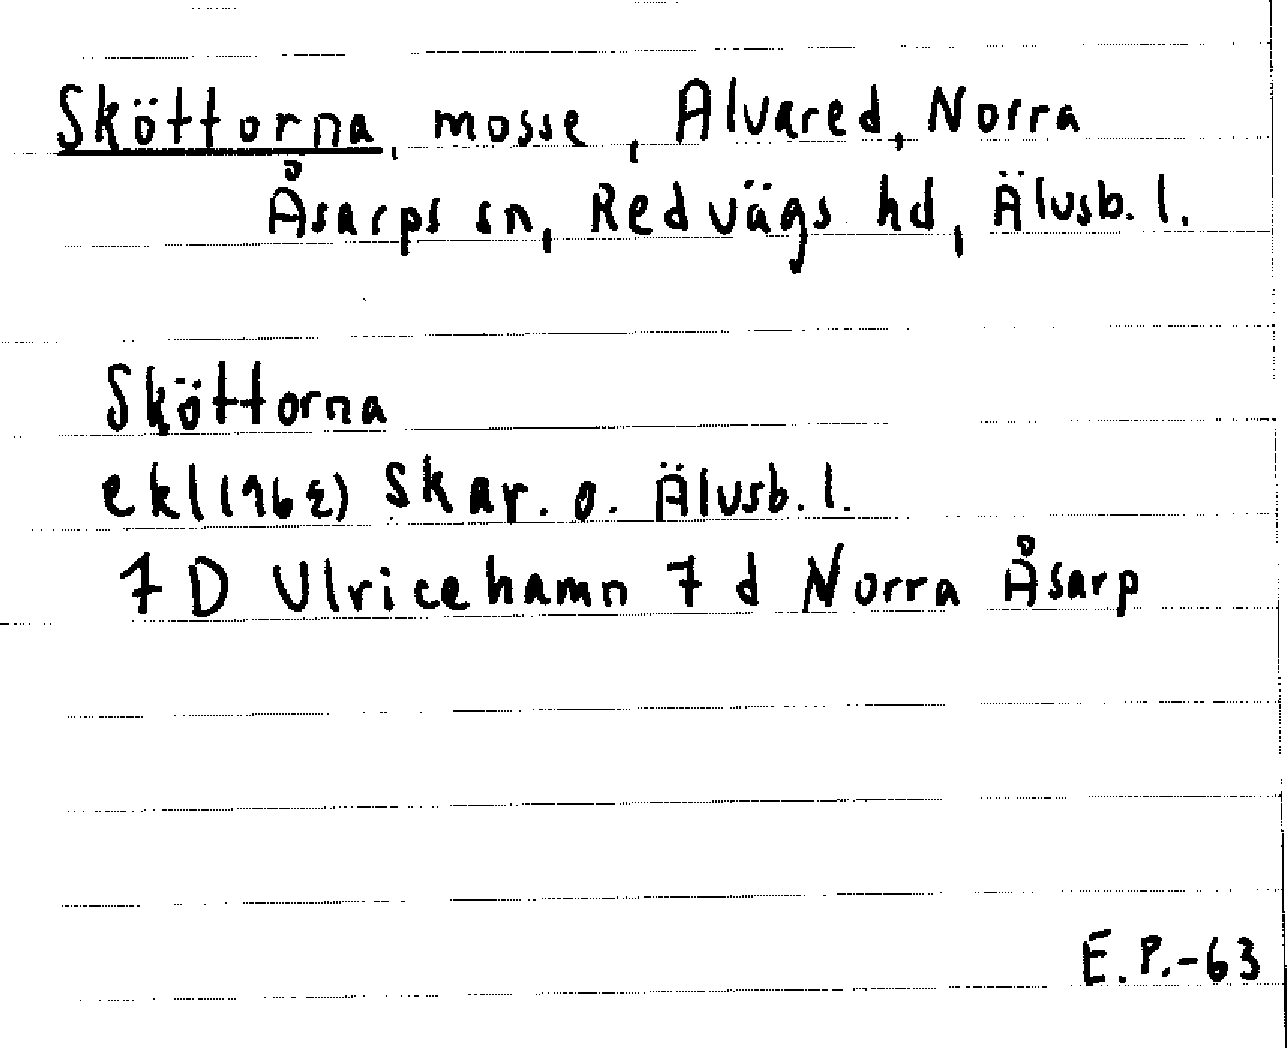 Sköttorna, mosse, Alvared, Norra
Åsarps sn, Redvägs hd, Älvsb. l.
Sköttorna
ekl (1962) Skar. o. Älvsb. l.
7 D Ulricehamn 7 d Norra Åsarp
E.P.-63